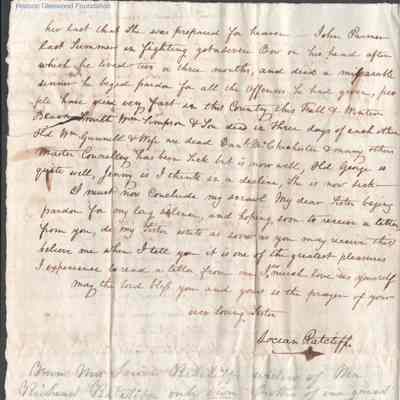 Historic Glenwood Foundation
her last that She was prepared for heaven — John
last Summer in fighting got a severe Blow on his head after
which he lived two or three months, and died a miserable
sinner he beged pardon for all the offences he had given, peo
ple have died very fast in this Country this Fall & Winter
Smith Wm Simpson & Son died in three days of each other
Old Wm Gunnell & Wife are dead Danl McChichester & many others
Master Connelley has been Sick but is now well, Old George is
quite well, Jenny is I think in a decline, She is now sick —
I must now Conclude my scrawl My dear Sister beging
pardon for my long silence, and hoping soon to receive a letter
from you, do my Sister write as soon as you may receive this
believe me when I tell you it is one of the greatest pleasures
I experience to read a letter from one I so much love as yourself
may the lord bless you and yours is the prayer of your
ever loving Sister
Locian Ratcliffe
Mrs
Richard Ratcliffe only